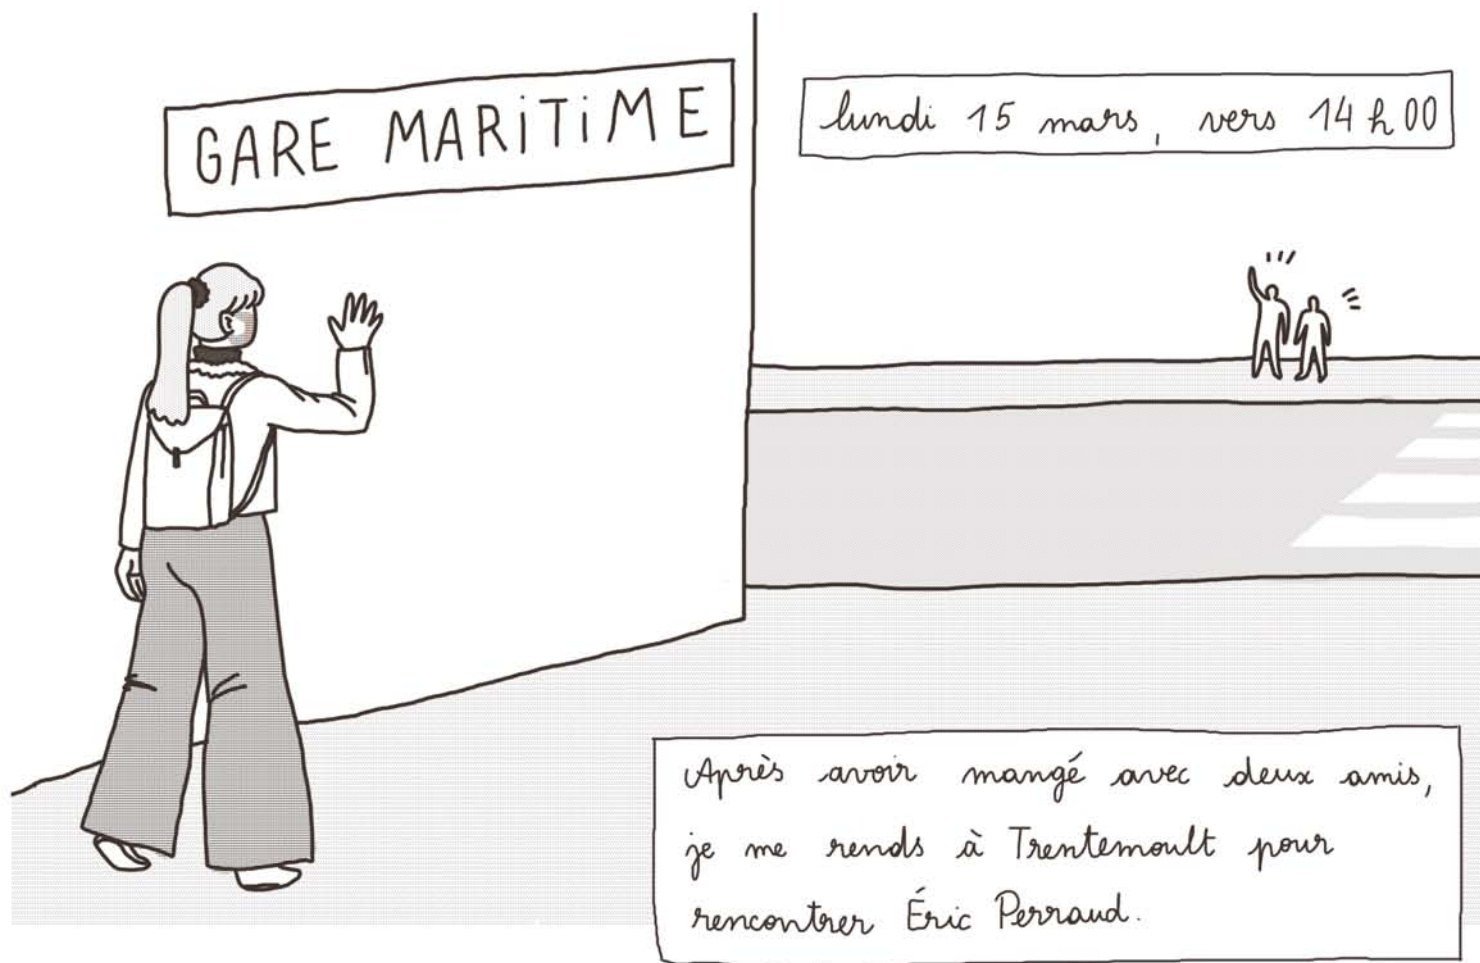 GARE MARiTiME
lundi 15 mars, vers 14 h 00
Après avoir mangé avec deux amis,
je me rends à Trentemoult pour
rencontrer Éric Perraud.